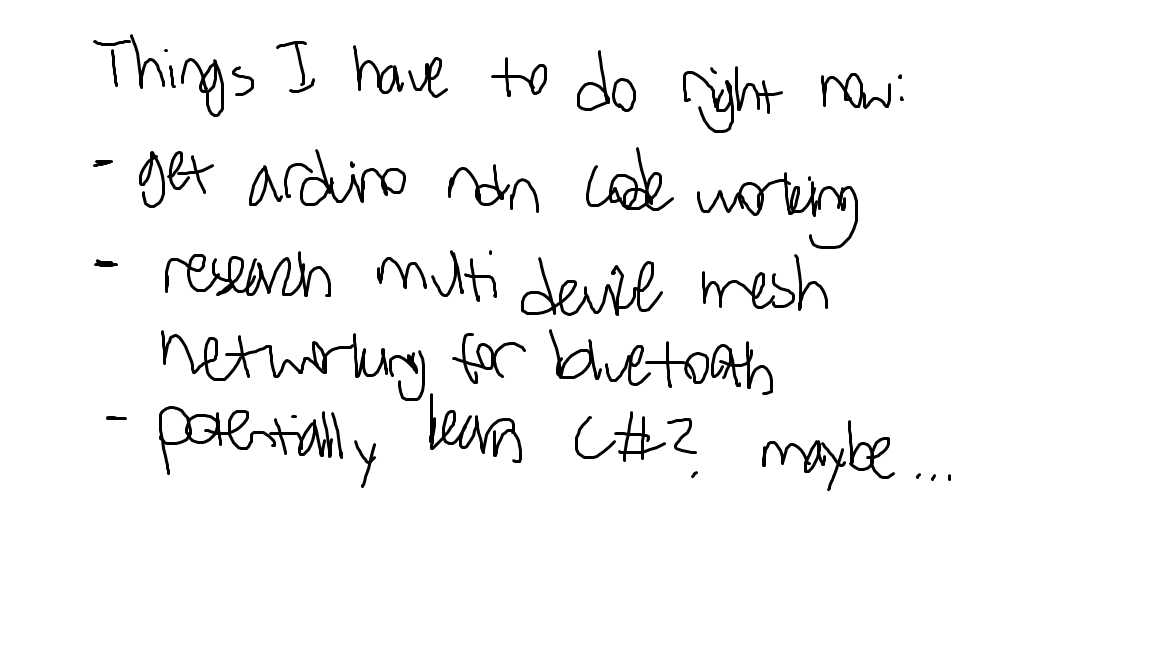 Things I have to do right now:
- get arduino ndn code working
- research multi device mesh
networking for bluetooth
- potentially learn C#? maybe...